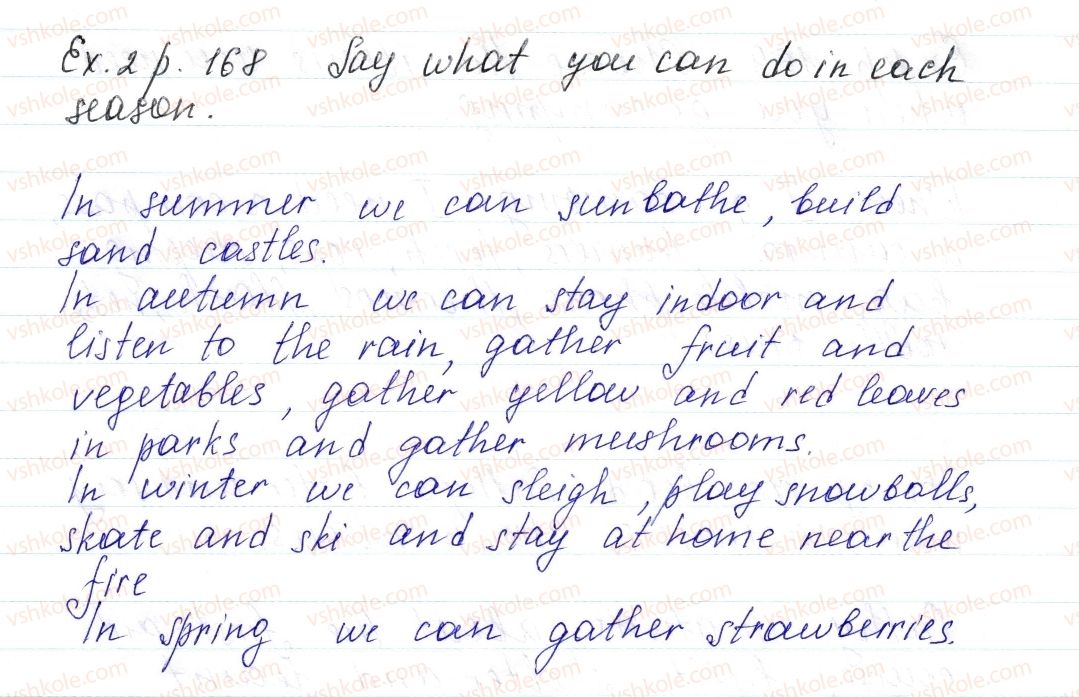 Ex. 2 p. 168 Say what you can do in each
season.
In summer we can sunbathe, build
sand castles.
In autumn we can stay indoor and
listen to the rain, gather fruit and
vegetables, gather yellow and red leaves
in parks and gather mushrooms.
In winter we can sleigh, play snowballs,
skate and ski and stay at home near the
fire
In spring we can gather strawberries.